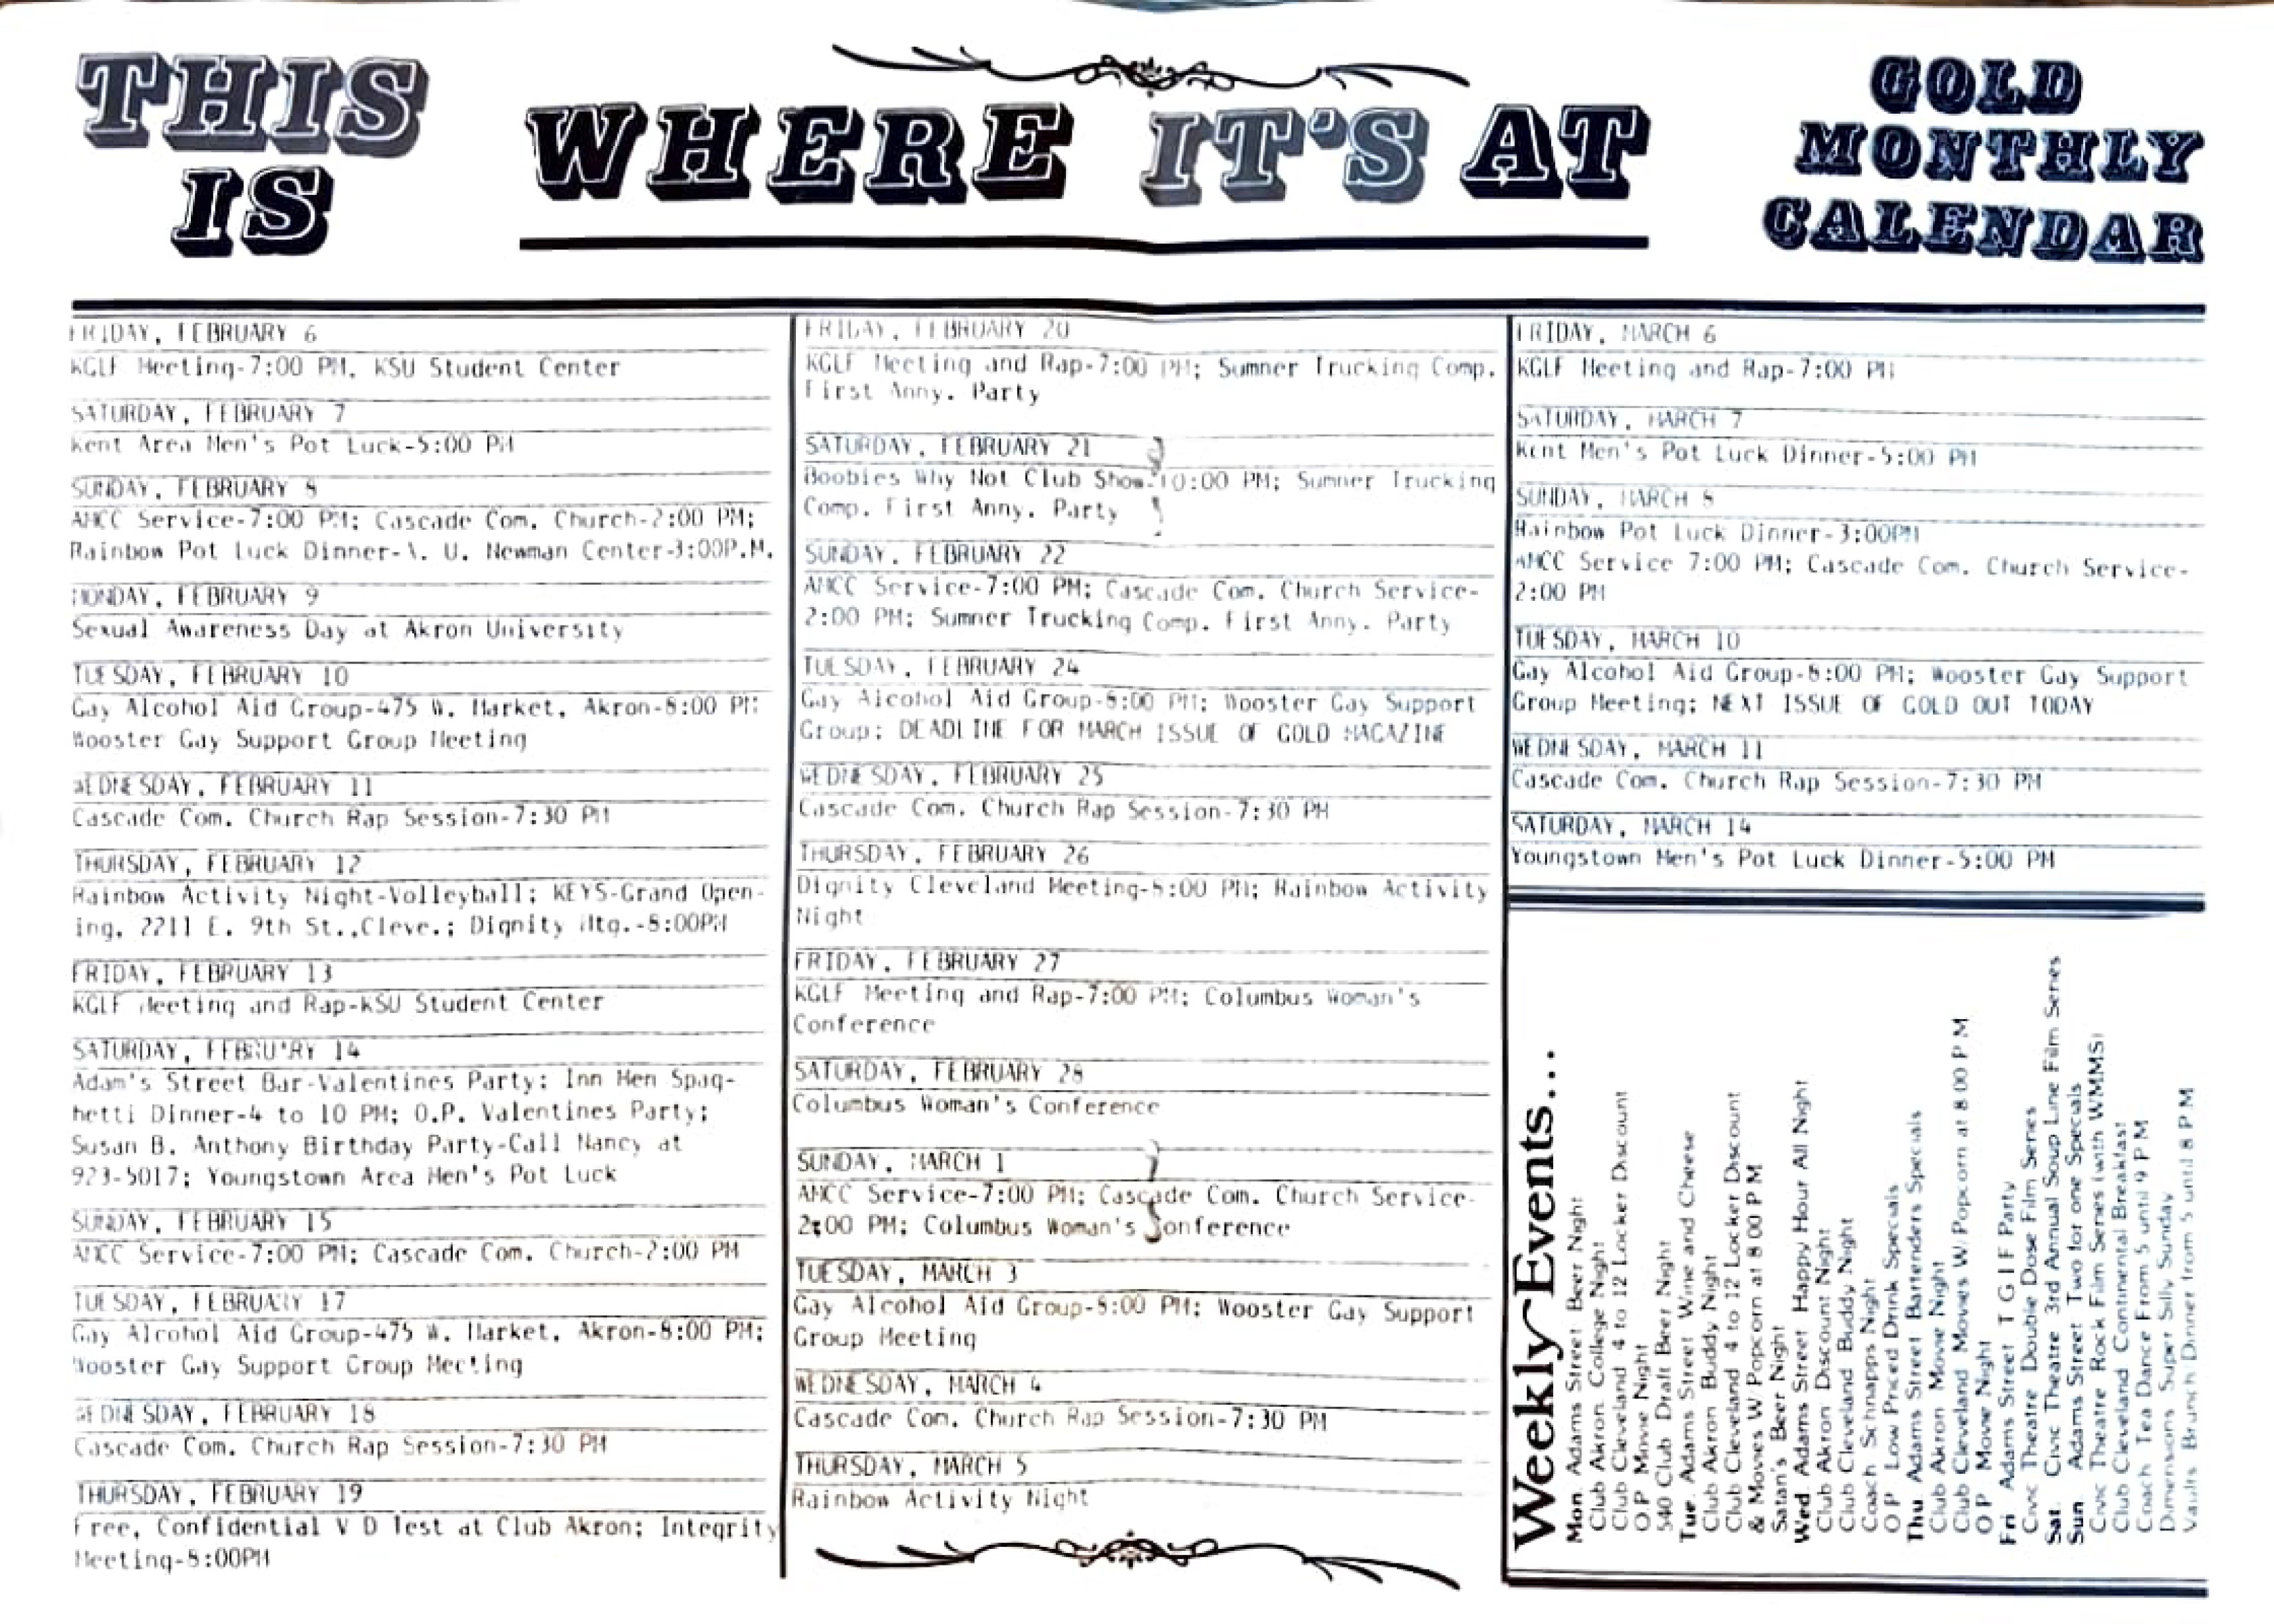 THIS
IS
WHERE IT'S AT
GOLD
MONTHLY
CALENDAR
FRIDAY, FEBRUARY 6
KGLF Meeting-7:00 PM, KSU Student Center
SATURDAY, FEBRUARY 7
Kent Area Men's Pot Luck-5:00 PM
SUNDAY, FEBRUARY 8
AMCC Service-7:00 PM; Cascade Com. Church-2:00 PM;
Rainbow Pot Luck Dinner-A. U. Newman Center-3:00P.M.
MONDAY, FEBRUARY 9
Sexual Awareness Day at Akron University
TUESDAY, FEBRUARY 10
Gay Alcohol Aid Group-475 W. Market, Akron-8:00 PM
Wooster Gay Support Group Meeting
WEDNESDAY, FEBRUARY 11
Cascade Com. Church Rap Session-7:30 PM
THURSDAY, FEBRUARY 12
Rainbow Activity Night-Volleyball; KEYS-Grand Open-
ing, 2211 E. 9th St.,Cleve.; Dignity Mtg.-8:00PM
FRIDAY, FEBRUARY 13
KGLF Meeting and Rap-KSU Student Center
SATURDAY, FEBRUARY 14
Adam's Street Bar-Valentines Party; Inn Men Spag-
hetti Dinner-4 to 10 PM; O.P. Valentines Party;
Susan B. Anthony Birthday Party-Call Nancy at
923-5017; Youngstown Area Men's Pot Luck
SUNDAY, FEBRUARY 15
AMCC Service-7:00 PM; Cascade Com. Church-2:00 PM
TUESDAY, FEBRUARY 17
Gay Alcohol Aid Group-475 W. Market, Akron-8:00 PM;
Wooster Gay Support Group Meeting
WEDNESDAY, FEBRUARY 18
Cascade Com. Church Rap Session-7:30 PM
THURSDAY, FEBRUARY 19
Free, Confidential V D Test at Club Akron; Integrity
Meeting-8:00PM
FRIDAY, FEBRUARY 20
KGLF Meeting and Rap-7:00 PM; Sumner Trucking Comp.
First Anny. Party
SATURDAY, FEBRUARY 21
Boobies Why Not Club Show-10:00 PM; Sumner Trucking
Comp. First Anny. Party
SUNDAY, FEBRUARY 22
AMCC Service-7:00 PM; Cascade Com. Church Service-
2:00 PM; Sumner Trucking Comp. First Anny. Party
TUESDAY, FEBRUARY 24
Gay Alcohol Aid Group-8:00 PM; Wooster Gay Support
Group; DEADLINE FOR MARCH ISSUE OF GOLD MAGAZINE
WEDNESDAY, FEBRUARY 25
Cascade Com. Church Rap Session-7:30 PM
THURSDAY, FEBRUARY 26
Dignity Cleveland Meeting-8:00 PM; Rainbow Activity
Night
FRIDAY, FEBRUARY 27
KGLF Meeting and Rap-7:00 PM; Columbus Woman's
Conference
SATURDAY, FEBRUARY 28
Columbus Woman's Conference
SUNDAY, MARCH 1
AMCC Service-7:00 PM; Cascade Com. Church Service-
2:00 PM; Columbus Woman's Conference
TUESDAY, MARCH 3
Gay Alcohol Aid Group-8:00 PM; Wooster Gay Support
Group Meeting
WEDNESDAY, MARCH 4
Cascade Com. Church Rap Session-7:30 PM
THURSDAY, MARCH 5
Rainbow Activity Night
FRIDAY, MARCH 6
KGLF Meeting and Rap-7:00 PM
SATURDAY, MARCH 7
Kent Men's Pot Luck Dinner-5:00 PM
SUNDAY, MARCH 8
Rainbow Pot Luck Dinner-3:00PM
AMCC Service 7:00 PM; Cascade Com. Church Service-
2:00 PM
TUESDAY, MARCH 10
Gay Alcohol Aid Group-8:00 PM; Wooster Gay Support
Group Meeting; NEXT ISSUE OF GOLD OUT TODAY
WEDNESDAY, MARCH 11
Cascade Com. Church Rap Session-7:30 PM
SATURDAY, MARCH 14
Youngstown Men's Pot Luck Dinner-5:00 PM
Weekly Events...
Mon. Adams Street Beer Night
Club Akron. College Night
Club Cleveland 4 to 12 Locker Discount
O P Movie Night
540 Club Draft Beer Night
Tue. Adams Street Wine and Cheese
Club Akron Buddy Night
Club Cleveland 4 to 12 Locker Discount
& Movies W/ Popcorn at 8 00 P M
Satan's Beer Night
Wed Adams Street Happy Hour All Night
Club Akron Discount Night
Club Cleveland Buddy Night
Coach Schnapps Night
O P Low Priced Drink Specials
Thu Adams Street Bartenders Specials
Club Akron Movie Night
Club Cleveland Movies W/Popcorn at 8 00 P M
O P Movie Night
Fri Adams Street T G I F Party
Civic Theatre Double Dose Film Series
Sat. Civic Theatre 3rd Annual Soup Line Film Series
Sun Adams Street Two for one Specials
Civic Theatre Rock Film Series (with WMMS)
Club Cleveland Continental Breakfast
Coach Tea Dance From 5 until 9 P M
Dimensions Super Silly Sunday
Vaults Brunch Dinner from 5 until 8 P M